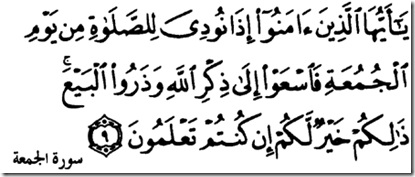 يَٰٓأَيُّهَا ٱلَّذِينَ ءَامَنُوٓا۟ إِذَا نُودِىَ لِلصَّلَوٰةِ مِن يَوْمِ
ٱلْجُمُعَةِ فَٱسْعَوْا۟ إِلَىٰ ذِكْرِ ٱللَّهِ وَذَرُوا۟ ٱلْبَيْعَ ۚ
ذَٰلِكُمْ خَيْرٌ لَّكُمْ إِن كُنتُمْ تَعْلَمُونَ ٩
سورة الجمعة